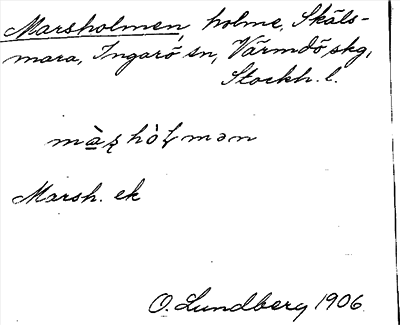 Marsholmen, holme, Skäls-
mara, Ingarö sn, Värmdö skg,
Stockh. l.
Marsh. ek
O. Lundberg 1906